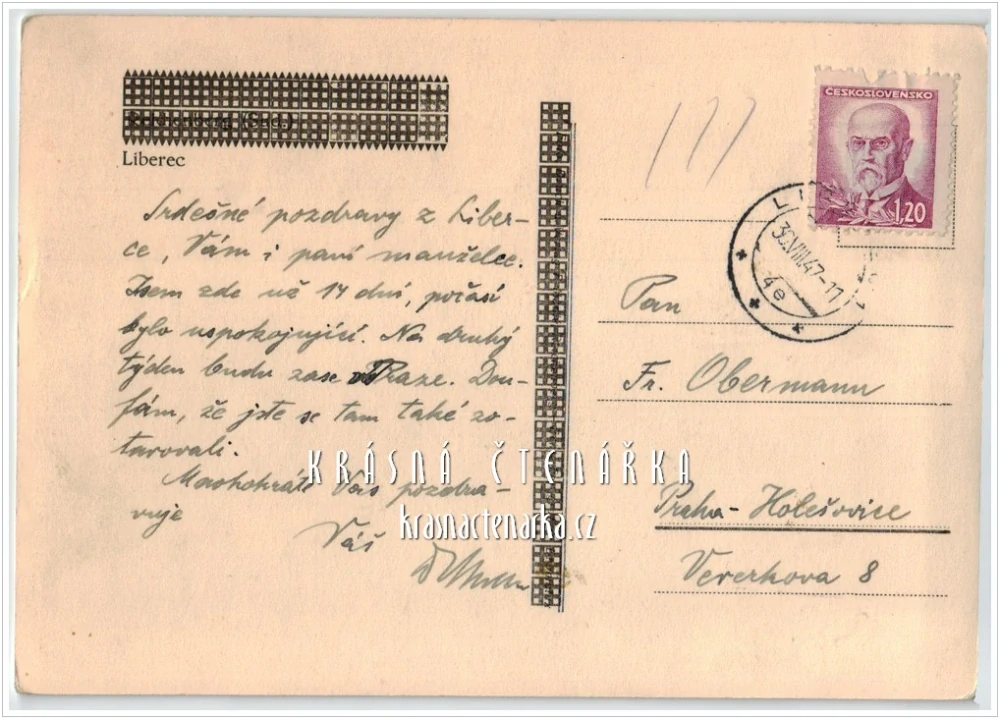 Liberec
Srdešné pozdravy z Liber-
ce, Vám i paní manželce.
Jsem zde už 14 dní, počasí
bylo uspokojující. Na druhý
týden budu zase v Praze. Dou-
fám, že jste se tam také zo-
tavovali.
Mnohokráte Vás pozdra-
vuje
Váš
ČESKOSLOVENSKO
1,20
30.VIII.47-17
4e
Pan
Fr. Obermann
Praha-Holešovice
Veverkova 8
KRÁSNÁ ČTENÁŘKA
krasnactenarka.cz